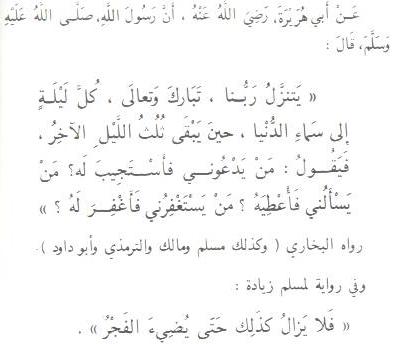 عَـنْ أَبي هُرَيْرَةَ، رَضِيَ اللهُ عَنْهُ ، أَنَّ رَسُولَ اللَّهِ،صَلَّـى اللهُ عَلَيْهِ
وَسَلَّمَ، قالَ :
« يَتنزَّلُ رَبُّـنا ، تَبَارَكَ وَتَعالَى ، كُـلَّ لَيْلَـةٍ
إلى سَماءِ الدُّنْيا ، حينَ يَبْقَى ثُلُثُ اللَّيْلِ الآخِرُ ،
فَيَقُـولُ : مَنْ يَدْعُونـي فأَسْـتَجِيبَ لَه؟ مَنْ
يَسْأَلُني فَأُعْطِيَهُ ؟ مَنْ يَسْتَغْفِرُني فَأَغْفِـرَ لَهُ ؟ »
رواه البخاري ( وكذلك مسلم ومالك والترمذي وأبو داود ).
وفي رواية لمسلم زيادة :
« فَلا يَزالُ كَذلِكَ حَتَّى يُضِيءَ الفَجْرُ » .